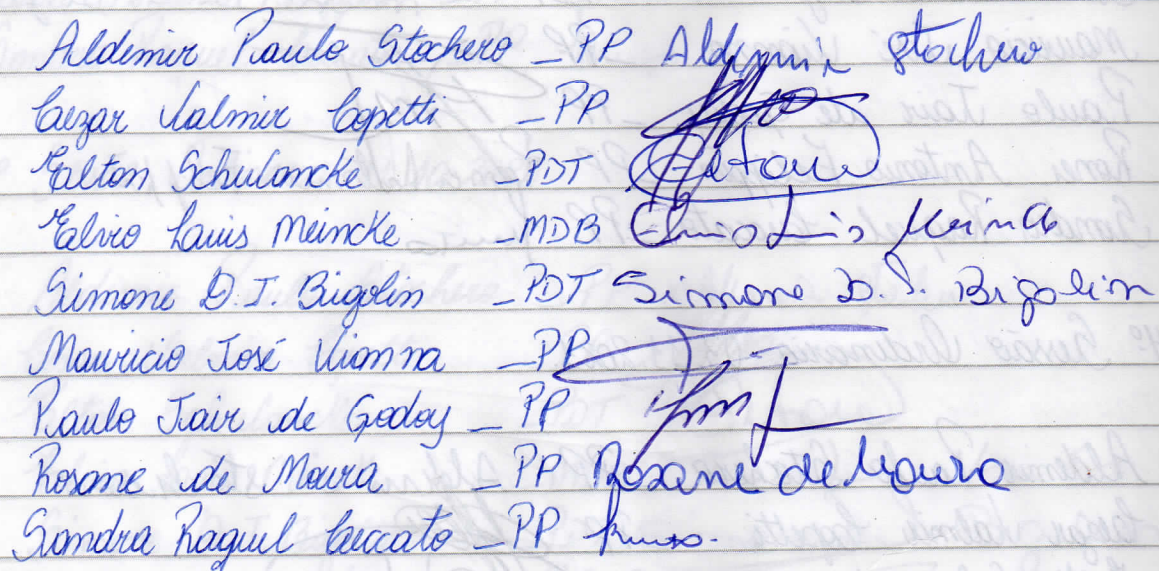 Aldemir Paulo Stochero - PP Aldemir Stochero
Cezar Valmir Copetti - PP
Elton Schulancke - PDT
Elvio Luis Meincke - MDB Elvio Luis Meincke
Simone D. J. Bigolin - PDT Simone D. J. Bigolin
Mauricio José Vianna - PP
Paulo Jair de Godoy - PP
Rosane de Moura - PP Rosane de Moura
Sandra Raquel Ceccato - PP